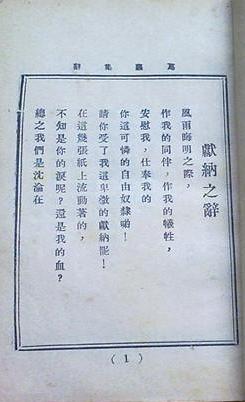 蔦蘿集辭
獻納之辭
風雨晦明之際，
作我的同伴，作我的犧牲，
安慰我，仕奉我的
你這可憐的自由奴隸喲！
請你受了我這卑微的獻納罷！
在這幾張紙上流動著的，
不知是你的淚呢？還是我的血？
總之我們是沈淪在
(1)